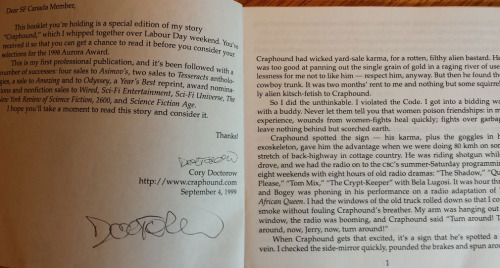 Dear SF Canada Member,
This booklet you're holding is a special edition of my story
"Craphound," which I whipped together over Labour Day weekend. You've
received it so that you can get a chance to read it before you consider your
selections for the 1998 Aurora Award.
This is my first professional publication, and it's been followed with a
number of successes: four sales to Asimov's, two sales to Tesseracts antholo-
gies, a sale to Amazing and to Odyssey, a Year's Best reprint, award nomina-
tions and nonfiction sales to Wired, Sci-Fi Entertainment, Sci-Fi Universe, The
New York Review of Science Fiction, 2600, and Science Fiction Age.
I hope you'll take a moment to read this story and consider it.
Thanks!
Doctorow
Cory Doctorow
http://www.craphound.com
September 4, 1999
Doctorow
Craphound had wicked yard-sale karma, for a rotten, filthy alien bastard. He
was too good at panning out the single grain of gold in a raging river of use-
lessness for me not to like him — respect him, anyway. But then he found the
cowboy trunk. It was two months' rent to me and nothing but some squirrel-
ly alien kitsch-fetish to Craphound.
So I did the unthinkable. I violated the Code. I got into a bidding wa
with a buddy. Never let them tell you that women poison friendships: in m
experience, wounds from women-fights heal quickly; fights over garbag
leave nothing behind but scorched earth.
Craphound spotted the sign — his karma, plus the goggles in h
exoskeleton, gave him the advantage when we were doing 80 kmh on som
stretch of back-highway in cottage country. He was riding shotgun whil
drove, and we had the radio on to the CBC's summer-Saturday programmin
eight weekends with eight hours of old radio dramas: "The Shadow," "Qu
Please," "Tom Mix," "The Crypt-Keeper" with Bela Lugosi. It was hour th
and Bogey was phoning in his performance on a radio adaptation of
African Queen. I had the windows of the old truck rolled down so that I co
smoke without fouling Craphound's breather. My arm was hanging out
window, the radio was booming, and Craphound said "Turn around! T
around, now, Jerry, now, turn around!"
When Craphound gets that excited, it's a sign that he's spotted a
vein. I checked the side-mirror quickly, pounded the brakes and spun aroun
1